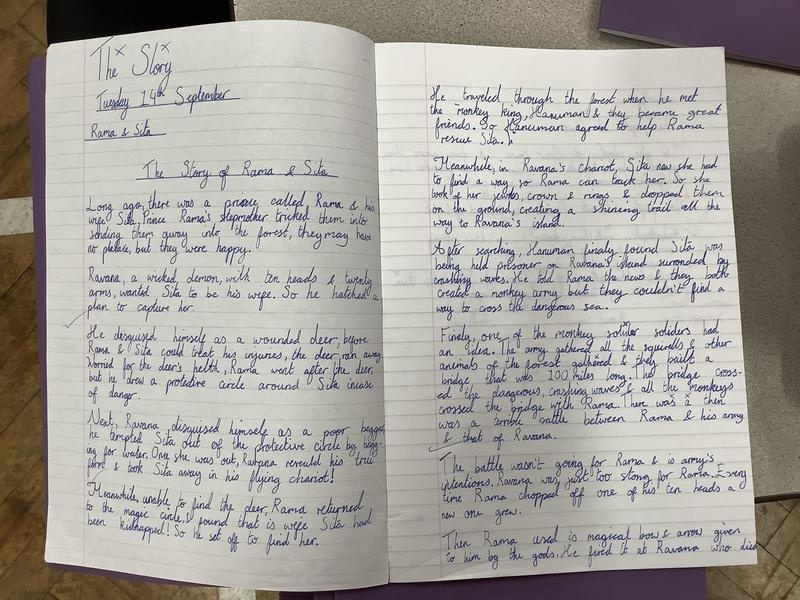 The Story
Tuesday 14th September
Rama & Sita
The Story of Rama & Sita
Long ago, there was a prince called Rama & his
wife Sita. Prince Rama's stepmother tricked them into
sending them away into the forest, they may have
no palace, but they were happy.
Ravana, a wicked, demon, with ten heads & twenty
arms, wanted Sita to be his wife. So he hatched a
plan to capture her.
He disguised himself as a wounded deer, before
Rama & Sita could treat his injuries, the deer, ran away.
Worried for the deer's helth, Rama went after the deer,
but he drew a protective circle around Sita incase
of danger.
Next, Ravana disguised himself as a poor beggar,
he tempted Sita out of the protective circle by begg-
ing for water. One she was out, Ravana reveuld his true
form & took Sita away in his flying chariot!
Meanwhile, unable to find the deer, Rama returned
to the magic circle, & found that is wife Sita had
been kidnapped! So he set off to find her.
He traveled through the forest when he met
the monkey king, Hanuman & they became great
friends. So Hanuman agreed to help Rama
rescue Sita.
Meanwhile, in Ravana's chariot, Sita new she had
to find a way so Rama can track her. So she
took of her jewles, crown & rings & dropped them
on the ground, creating a shining trail all the
way to Ravana's island.
After searching, Hanuman finaly found Sita was
being held prisoner on Ravana's island surronded by
crashing waves. He told Rama the news & they both
created a monkey army but they couldn't find a
way to cross the dangerous sea.
Finaly, one of the monkey soliders had
an idea. The army gathered all the squirells & other
animals of the forest gathered & they built a
bridge, that was 100 miles long. The bridge cross-
ed the dangerous, crashing waves & all the monkeys
crossed the bridge with Rama. There was a then
was a terrible battle between Rama & his army
& that of Ravana.
The battle wasn't going for Rama & is army's
intentions. Ravana was, just too stong for Rama. Every
time Rama chopped off one of his ten heads a
new one grew.
Then Rama used is magical bow & arrow given
to him by the gods. He fired it at Ravana who died